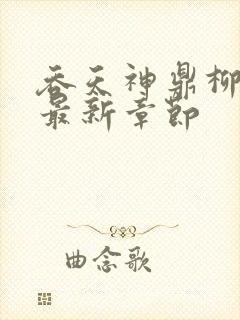 吞天神鼎柳
最新章节
曲念歌